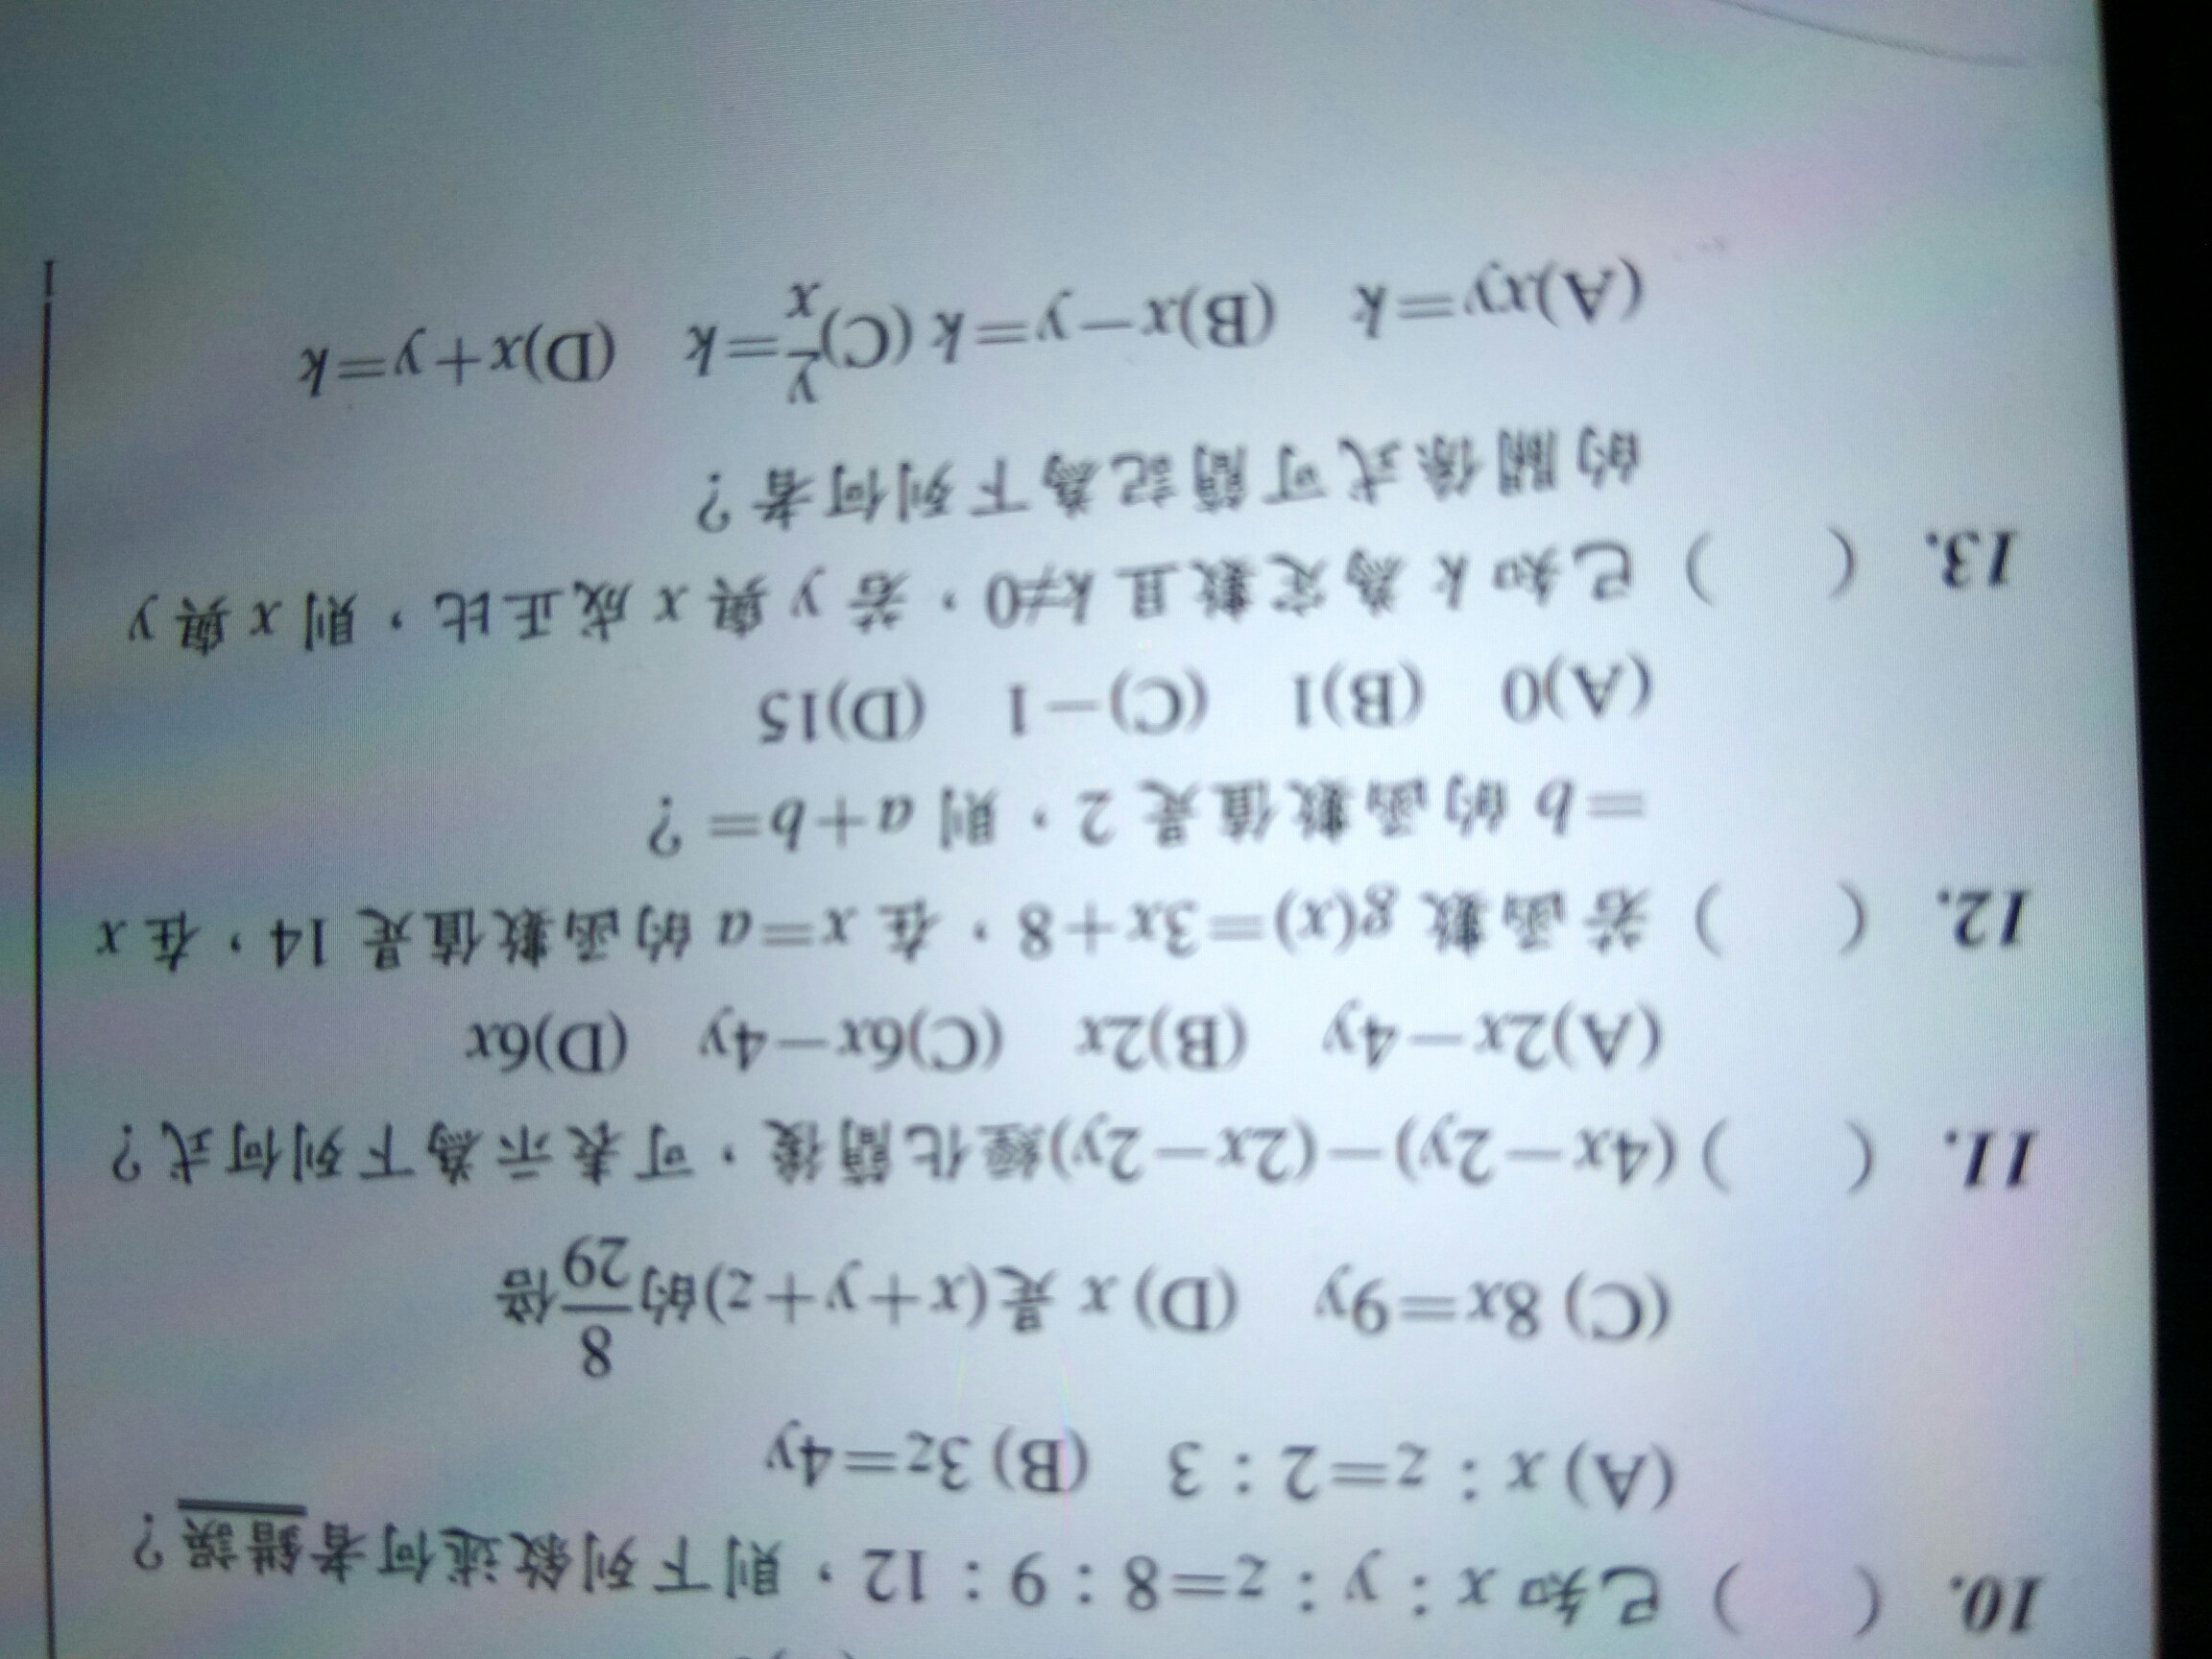 10. (　　) 已知 x：y：z=8：9：12，則下列敘述何者錯誤？
(A) x：z=2：3　(B) 3z=4y
(C) 8x=9y　(D) x 是(x+y+z)的8/29倍
11. (　　) (4x-2y)-(2x-2y)經化簡後，可表示為下列何式？
(A)2x-4y　(B)2x　(C)6x-4y　(D)6x
12. (　　) 若函數 g(x)=3x+8，在 x=a 的函數值是 14，在 x
=b 的函數值是 2，則 a+b=？
(A)0　(B)1　(C)-1　(D)15
13. (　　) 已知 k 為定數且 k≠0，若 y 與 x 成正比，則 x 與 y
的關係式可簡記為下列何者？
(A)xy=k　(B)x-y=k (C)y/x=k　(D)x+y=k